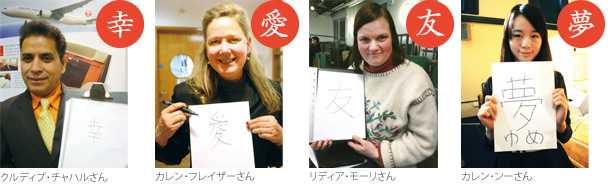 幸
幸
クルディプ・チャハルさん
愛
愛
カレン・フレイザーさん
友
友
リディア・モーリさん
夢
夢
ゆめ
カレン・ンーさん